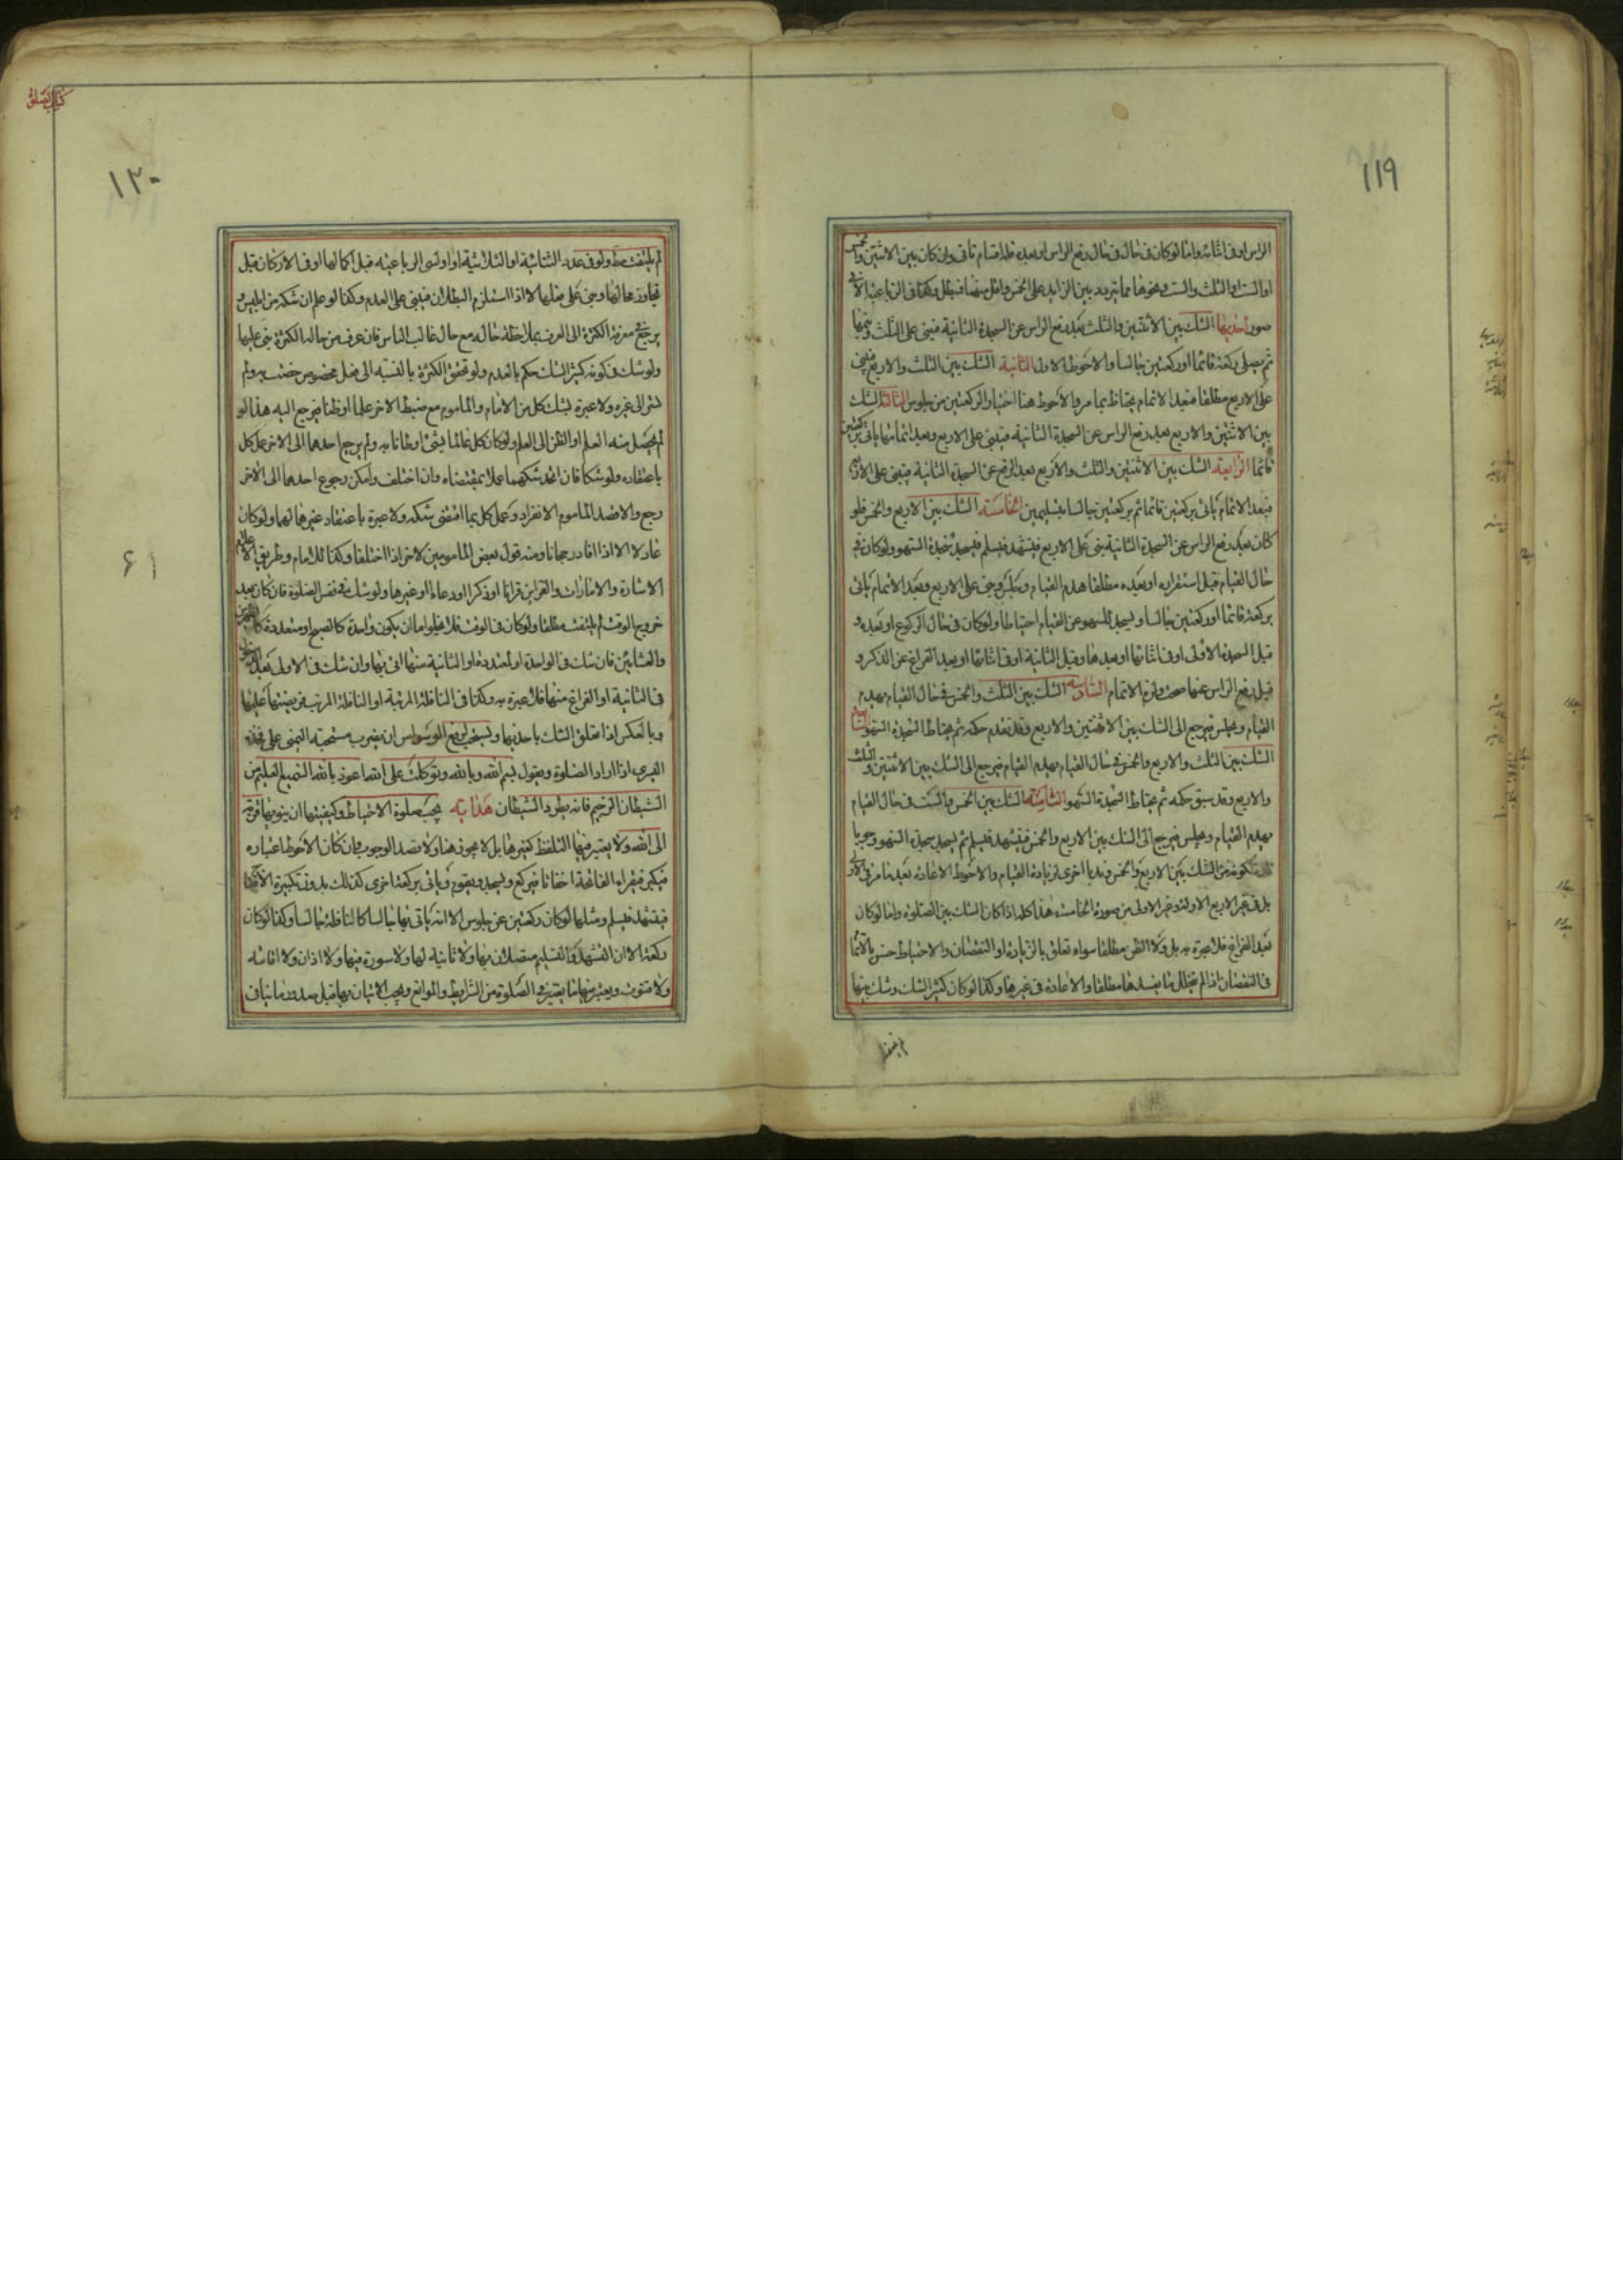 ١١٩
الراس او فى اثنائه واما لو كان فى حال فى حال رفع الراس او بعده فله اقسام تاتى وان كان بين الاثنتين والخمس
او الست او الثلث والست ونحوها مما يتردد بين الزايد على الخمس واقل منها فبطل وكذا فى الرباعية الا فى
صور احديها الشك بين الاثنتين والثلث بعد رفع الراس عن السجدة الثانية فيبنى على الثلث ويتمها
ثم يصلى ركعة قائما او ركعتين جالسا والاحوط الاول الثانية الشك بين الثلث والاربع فيبنى
على الاربع مطلقا فبعد الاتمام يحتاط بما مر والاحوط هنا اختيار الركعتين من جلوس الثالثة الشك
بين الاثنتين والاربع بعد رفع الراس عن السجدة الثانية فيبنى على الاربع وبعد اتمامها ياتى بركعتين
قائما الرابعة الشك بين الاثنتين والثلث والاربع بعد الرفع عن السجدة الثانية فيبنى على الاربع
فبعد الاتمام ياتى بركعتين قائما ثم بركعتين جالسا بتسليمين الخامسة الشك بين الاربع والخمس فلو
كان بعد رفع الراس عن السجدة الثانية بنى على الاربع فيتشهد فيسلم فيسجد سجدة السهو ولو كان فى
حال القيام قبل استقراره او بعده مطلقا هدم القيام وجلس وبنى على الاربع وبعد الاتمام ياتى
بركعة قائما او ركعتين جالسا ويسجد للسهو عن القيام احتياطا ولو كان فى حال الركوع او بعده و
قبل السجدة الاولى او فى اثنائها او بعدها وقبل الثانية او فى اثنائها او بعد الفراغ عن الذكر و
قبل رفع الراس عنها صحت ولزم الاتمام السادسة الشك بين الثلث والخمس فى حال القيام يهدم
القيام ويجلس فيرجع الى الشك بين الاثنتين والاربع وقد تقدم حكمه ثم يحتاط السجدة السهو السابعة
الشك بين الثلث والاربع والخمس فى حال القيام يهدم القيام فيرجع الى الشك بين الاثنتين والثلث
والاربع وقد سبق حكمه ثم يحتاط السجدة السهو الثامنة الشك بين الخمس والست فى حال القيام
يهدم القيام ويجلس فيرجع الى الشك بين الاربع والخمس فيتشهد فيسلم ثم يسجد سجدة السهو وجوبا
لكونه من الشك بين الاربع والخمس وندبا اخرى لزيادة القيام والاحوط الاعادة بعد ما مر فى الاولى
بل فى غير الاربع الاول وغير الاولى من صورة الخامسة هذا كله اذا كان الشك بين الصلوة واما لو كان
بعد الفراغ فلا عبرة به بل ولا الظن مطلقا سواء تعلق بالزيادة او النقصان والاحتياط حسن بالاتمام
فى النقصان اذا لم يتخلل ما يفسدها مطلقا والاعادة فى غيرها وكذا لو كان كثير الشك وشك فيها
كتاب الصلوة
١٢٠
لم يلتفت مط ولو فى عدد الثنائية او الثلاثية او اولتى الرباعية قبل اكمالها او فى الاركان قبل
تجاوز محالها وبنى على فعلها الا اذا استلزم البطلان فيبنى على العدم وكذا لو علم ان شكه من ابليس و
يرجع فى معرفة الكثرة الى العرف بملاحظة حاله مع حال غالب الناس فان عرف من حاله الكثرة بنى عليها
ولو شك فى كونه كثير الشك حكم بالعدم ولو تحقق الكثرة بالنسبة الى فعل مخصوص خصت به ولم
تسر الى غيره ولا عبرة بشك كل من الامام والماموم مع ضبط الاخر علما او ظنا فيرجع اليه هذا لو
لم يحصل منه العلم او الظن الى العلم ولو كان كل عالما بشئ او ظانا به ولم يرجع احدهما الى الاخر عمل كل
باعتقاده ولو شكا فان اتحد شكهما عملا بمقتضاه وان اختلف وامكن رجوع احدهما الى الاخر
رجع والا قصد الماموم الانفراد وعمل كل بما اقتضى شكه ولا عبرة باعتقاد غيرهما لهما ولو كان
عادلا الا اذا افاد رجحانا ومنه قول بعض المامومين لاخر اذا اختلفا وكذا للامام وطريق الاعلام
الاشارة والامارات والقراين قرانا او ذكرا او دعاء او غيرها ولو شك فى نفس الصلوة فان كان بعد
خروج الوقت لم يلتفت مطلقا ولو كان فى الوقت فلا يخلو اما ان يكون واحدة كالصبح او متعددة كالظهرين
والعشائين فان شك فى الواحدة او المتعددة او الثانية منها اتى بها وان شك فى الاولى بعد الدخول
فى الثانية او الفراغ منها فلا عبرة به وكذا فى النافلة المرتبة او النافلة المرتب فريضتها عليها
وبالعكس اذا تعلق الشك باحديها ويستحب لرفع الوسواس ان يضرب مسبحته اليمنى على فخذه
اليسرى اذا اراد الصلوة ويقول بسم الله وبالله وتوكلت على الله اعوذ بالله السميع العليم من
الشيطان الرجيم فانه يطرد الشيطان هداية يجب صلوة الاحتياط وكيفيتها ان ينويها قربة
الى الله ولا يعتبر فيها التلفظ كغيرها بل لا يجوز هنا ولا قصد الوجوب وان كان الاحوط اعتباره
فيكبر فيقراء الفاتحة اخفاتا فيركع ويسجد ويقوم وياتى بركعة اخرى كذلك بدون تكبيرة الاحرام
فيتشهد فيسلم ومثلها لو كان ركعتين عن جلوس الا انه ياتى بها جالسا كالنافلة جالسا وكذا لو كان
ركعة الا ان التشهد والتسليم متصلان بها ولا ثانية لها ولا سورة فيها ولا اذان ولا اقامة
ولا قنوت ويعتبر فيها ما يعتبر فى الصلوة من الشرايط والموانع ويجب الاتيان بها قبل صدور ما ينافى
٦١